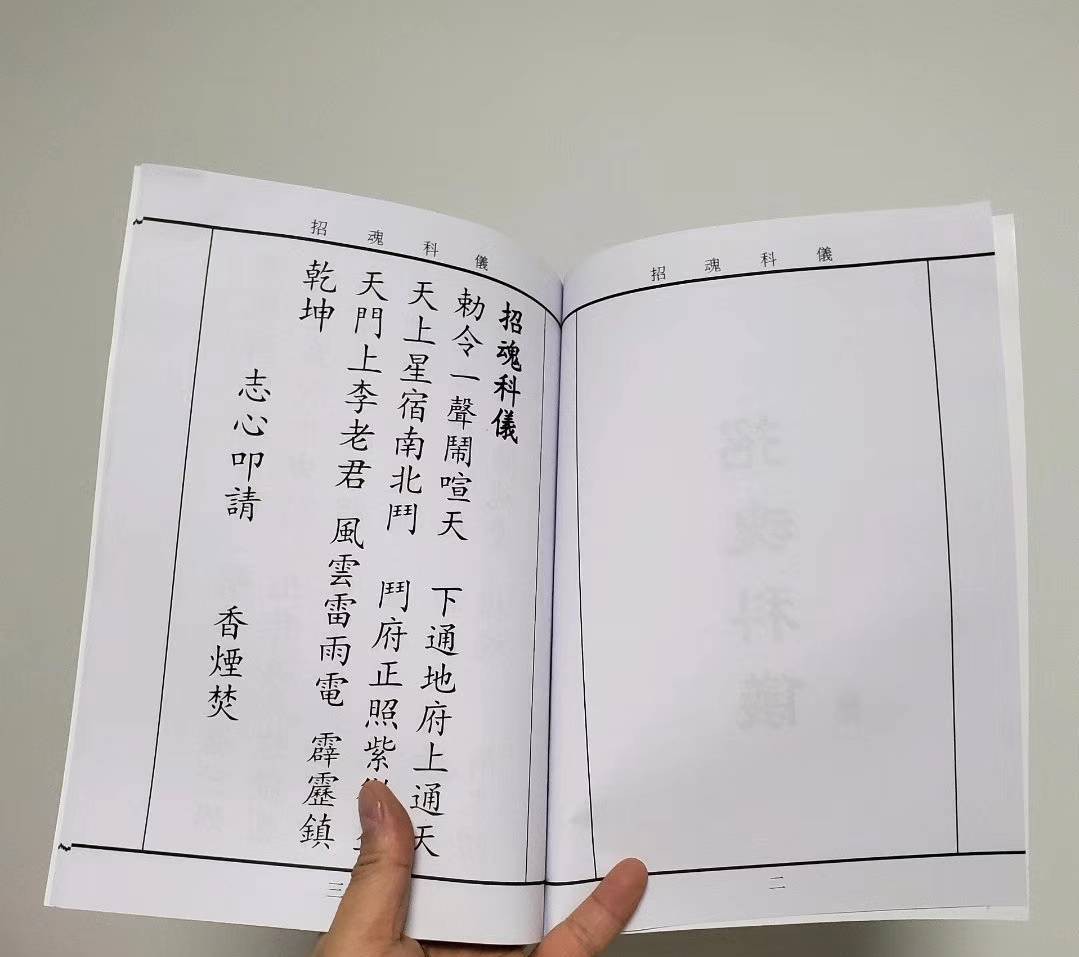 招魂科儀
二
招魂科儀
招魂科儀
勅令一聲鬧喧天 下通地府上通天
天上星宿南北鬥 鬥府正照紫
天門上李老君 風雲雷雨電 霹靂鎮
乾坤
志心叩請 
香煙焚
三